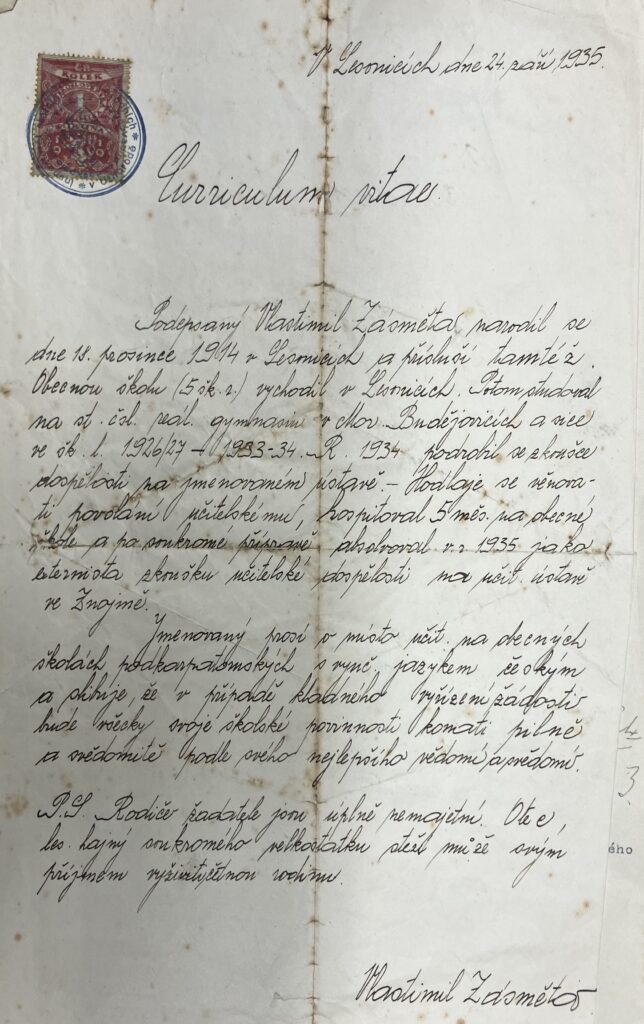 V Lesonicích dne 24. září 1935.
KOLEK
1
Curriculum vitae.
Podepsaný Vlastimil Zásměta narodil se
dne 18. prosince 1914 v Lesonicích a přísluší tamtéž.
Obecnou školu (5 šk. r.) vychodil v Lesonicích. Potom studoval
na st. čsl. reál. gymnasiu v Mor. Budějovicích a sice
ve šk. l. 1926/27 – 1933-34. R. 1934 podrobil se zkoušce
dospělosti na jmenovaném ústavě. – Hodlaje se věnova-
ti povolání učitelskému, hospitoval 5 měs. na obecné
škole a po soukromé přípravě absolvoval v r. 1935 jako
externista zkoušku učitelské dospělosti na učit. ústavě
ve Znojmě.
Jmenovaný prosí o místo učit. na obecných
školách podkarpatoruských s vyuč. jazykem českým
a slibuje, že v případě kladného vyřízení žádosti
bude všecky svoje školské povinnosti konati pilně
a svědomitě podle svého nejlepšího vědomí a svědomí.
P.S. Rodiče žadatele jsou úplně nemajetní. Otec,
les. hajný soukromého velkostatku stěží může svým
příjmem vyživiti četnou rodinu.
Vlastimil Zásměta
ého